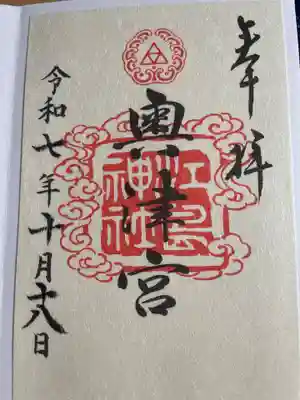 奉拝
奥津宮
江島神社
令和七年十月十八日